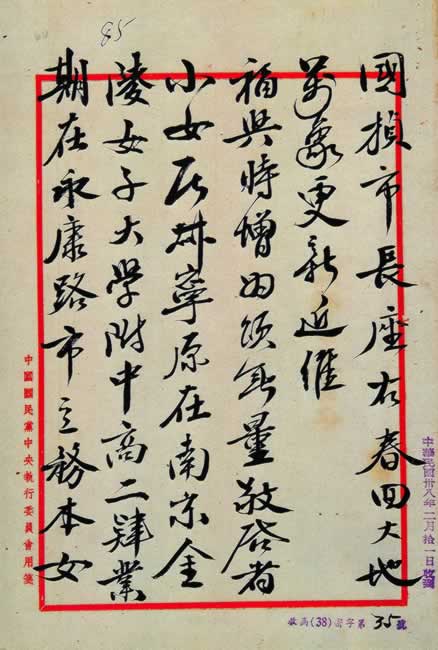 85
國楨市長座右春回大地
萬象更新近維
福與時增為頌無量敬啓者
小女寧原在南京金
陵女子大学附中高二肄業
期在永康路市立務本女
中國國民黨中央執行委員會用箋
中華民國卅八年二月拾一日收到
函(38)字第35號